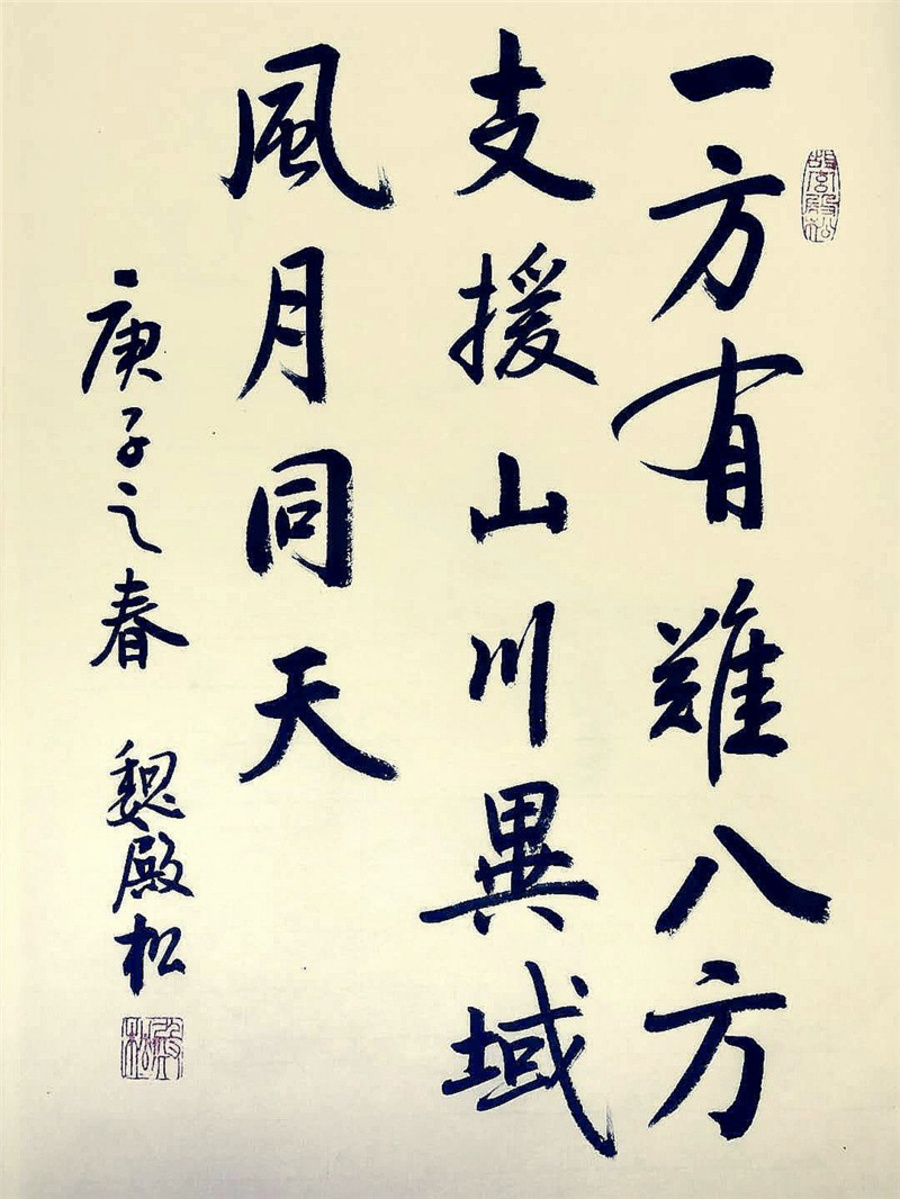 一方有難八方
支援山川異域
風月同天
庚子之春 魏殿松
殿松